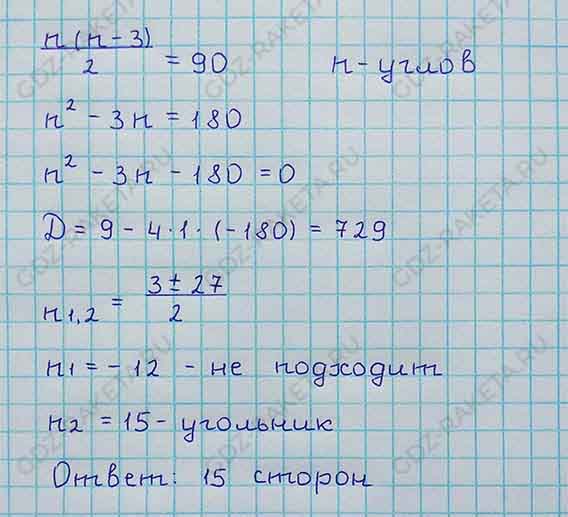 n(n-3)/2 = 90 n-углов
n² - 3n = 180
n² - 3n - 180 = 0
D = 9 - 4·1·(-180) = 729
n1,2 = (3 ± 27)/2
n1 = -12 - не подходит
n2 = 15 - угольник
Ответ: 15 сторон
GDZ-RAKETA.RU